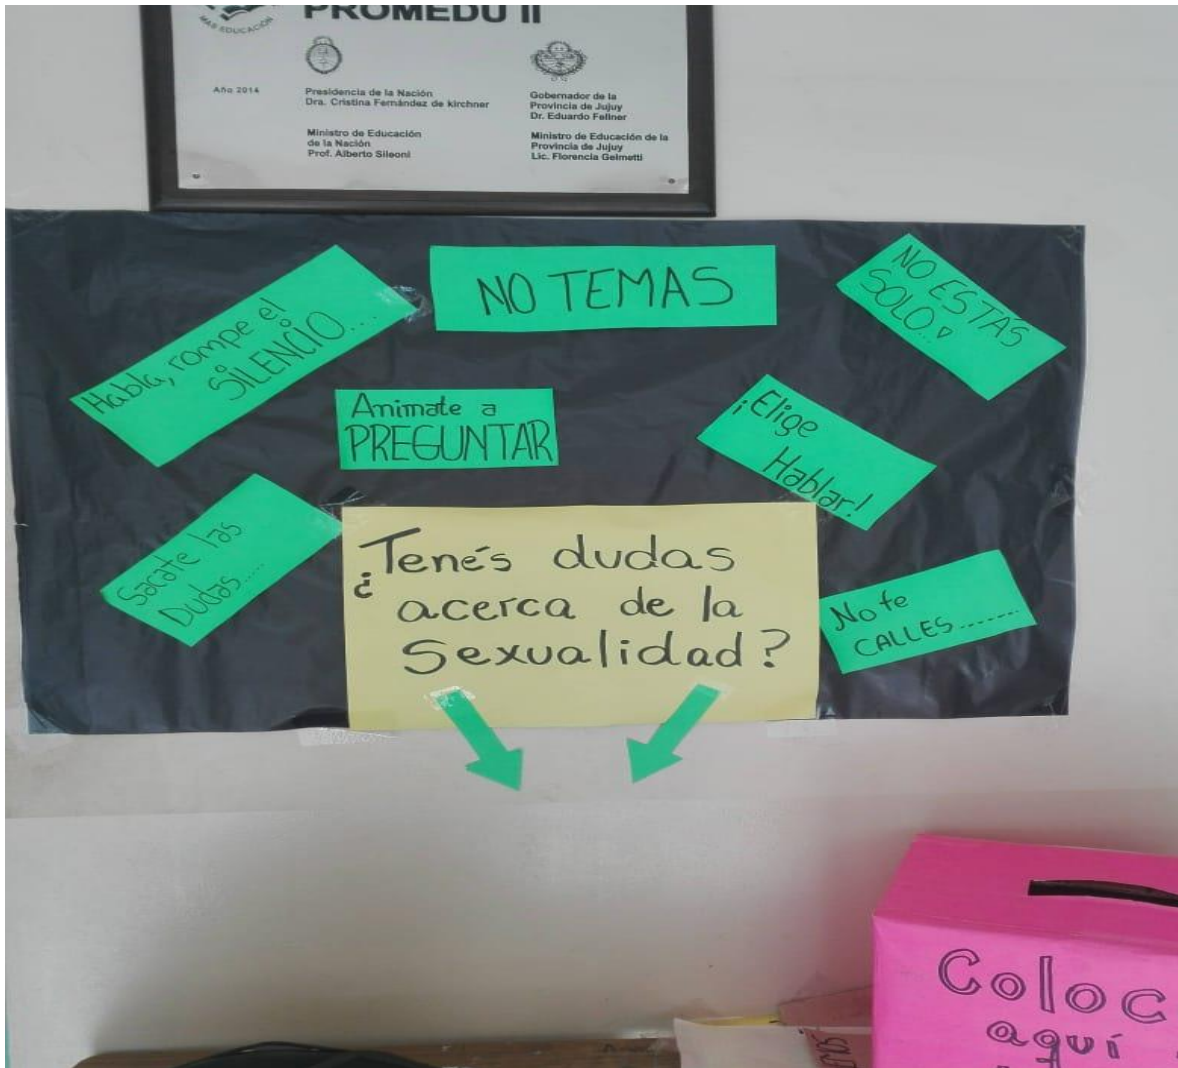 MAS EDUCACIÓN
PROMEDU II
Año 2014
Presidencia de la Nación
Dra. Cristina Fernández de kirchner
Ministro de Educación
de la Nación
Prof. Alberto Sileoni
Gobernador de la
Provincia de Jujuy
Dr. Eduardo Fellner
Ministro de Educación de la
Provincia de Jujuy
Lic. Florencia Gelmetti
Habla, rompe el
SILENCIO....
NO TEMAS
NO ESTÁS
SOLO..
Animate a
PREGUNTAR
¡Elige
Hablar!
Sacate las
Dudas.....
¿Tenés dudas
acerca de la
sexualidad?
No te
CALLES........
Coloc
aquí